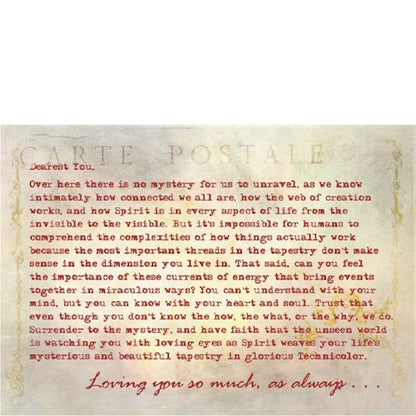 CARTE POSTALE
Dearest You,
Over here there is no mystery for us to unravel, as we know
intimately how connected we all are, how the web of creation
works, and how Spirit is in every aspect of life from the
invisible to the visible. But it's impossible for humans to
comprehend the complexities of how things actually work
because the most important threads in the tapestry don't make
sense in the dimension you live in. That said, can you feel
the importance of these currents of energy that bring events
together in miraculous ways? You can't understand with your
mind, but you can know with your heart and soul. Trust that
even though you don't know the how, the what, or the why, we do.
Surrender to the mystery, and have faith that the unseen world
is watching you with loving eyes as Spirit weaves your life's
mysterious and beautiful tapestry in glorious Technicolor.
Loving you so much, as always . . .